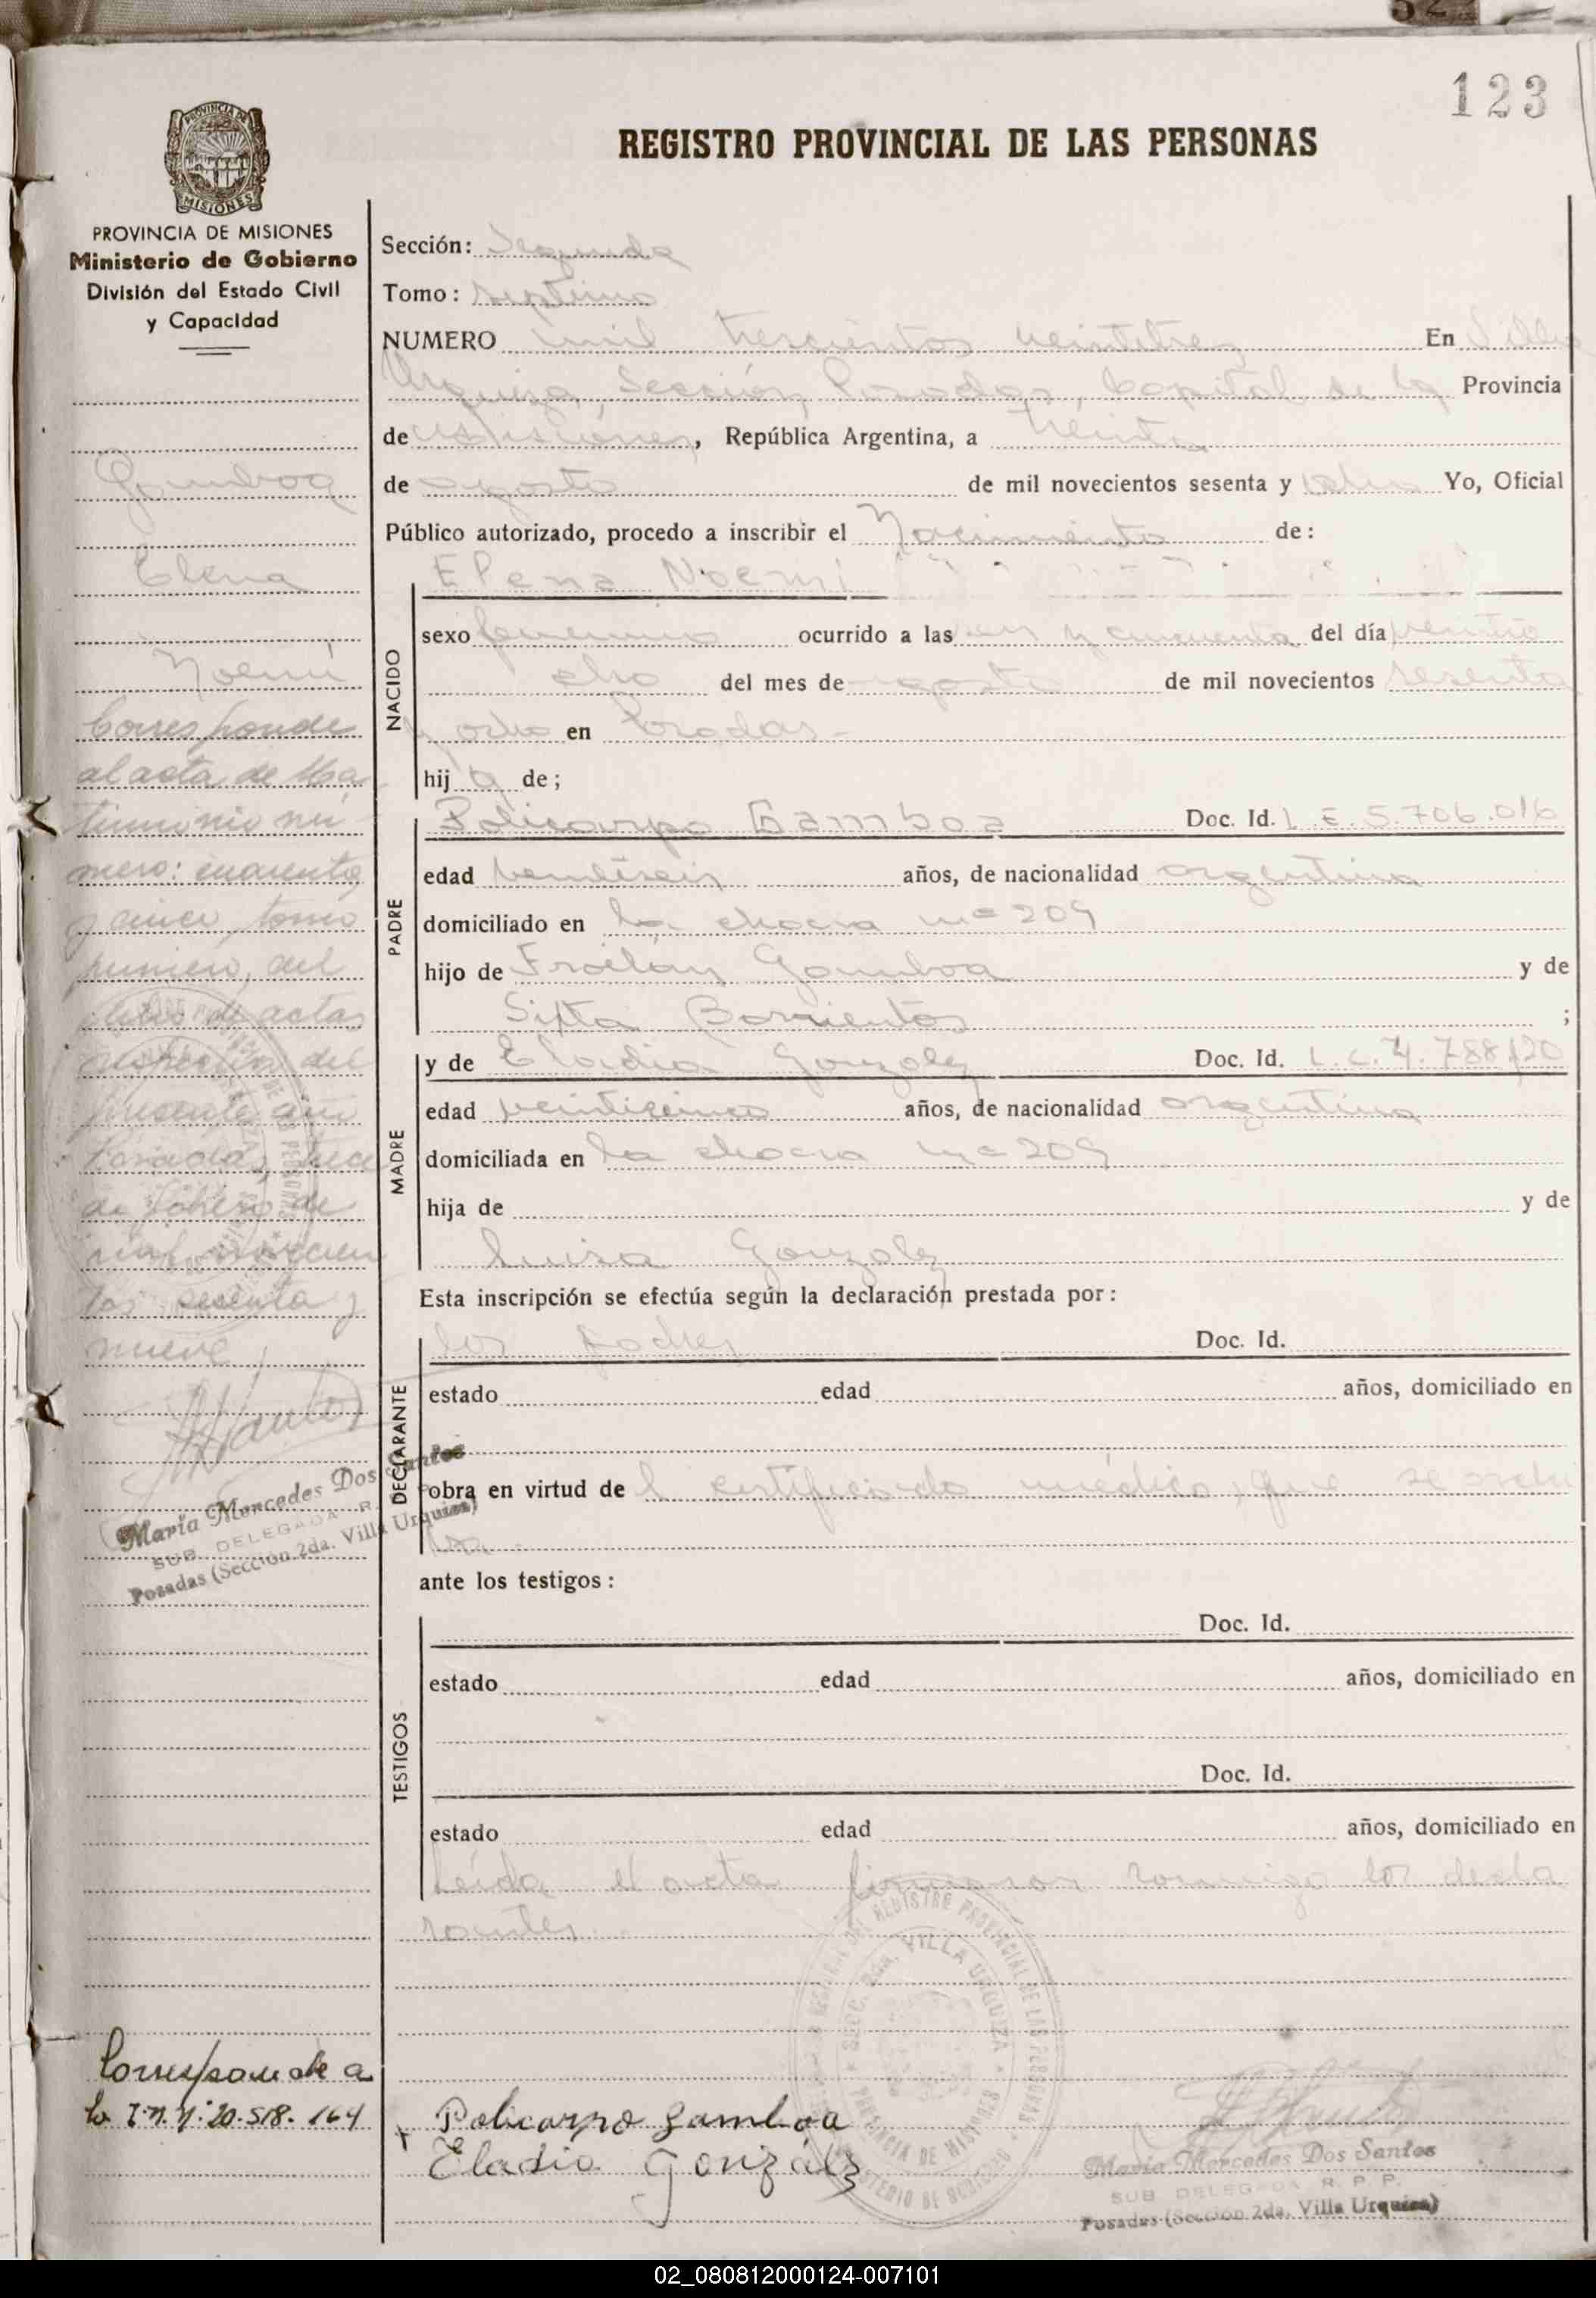 123
REGISTRO PROVINCIAL DE LAS PERSONAS
PROVINCIA DE MISIONES
Ministerio de Gobierno
División del Estado Civil
y Capacidad
Gamboa
Elena
Noemí
Corresponde
al acta de Ma
trimonio nú
mero: cuarenta
y cinco, tomo
primero, del
libro de actas
del
presente año
Posadas, trece
de febrero de
mil novecien
tos sesenta y
nueve
María Mercedes Dos Santos
SUB DELEGADA R.
Posadas (Sección 2da. Villa Urquiza)
Corresponde a
la I.N.Nº: 20.518.164
Sección: Segunda
Tomo: Septimo
NUMERO mil trescientos veintitres En Villa
Urquiza, Sección, Posadas, Capital de la Provincia
de Misiones, República Argentina, a treinta
de agosto de mil novecientos sesenta y ocho Yo, Oficial
Público autorizado, procedo a inscribir el Nacimiento de:
NACIDO
Elena Noemi
sexo femenino ocurrido a las y cincuenta del día veintio
cho del mes de agosto de mil novecientos sesenta
y ocho en Posadas.-
hij a de;
PADRE
Policarpo Gamboa Doc. Id. L.E.5.706.016
edad veintiseis años, de nacionalidad argentina
domiciliado en la chacra nº 209
hijo de Froilán Gamboa y de
Sixta Barrientos ;
MADRE
y de Eladia Gonzalez Doc. Id. L.C.4.788.120
edad veinticinco años, de nacionalidad argentina
domiciliada en la chacra nº 209
hija de y de
Luisa Gonzalez
Esta inscripción se efectúa según la declaración prestada por:
DECLARANTE
los padres Doc. Id.
estado edad años, domiciliado en
obra en virtud de l certificado médico, que se archi
va.
ante los testigos:
TESTIGOS
Doc. Id.
estado edad años, domiciliado en
Doc. Id.
estado edad años, domiciliado en
Leída el acta firman conmigo los decla
rantes.
Policarpo Gamboa
Eladia Gonzáles
SECC. 2da. VILLA URQUIZA
María Mercedes Dos Santos
SUB DELEGADA R. P. P.
Posadas (Sección 2da. Villa Urquiza)
02_080812000124-007101